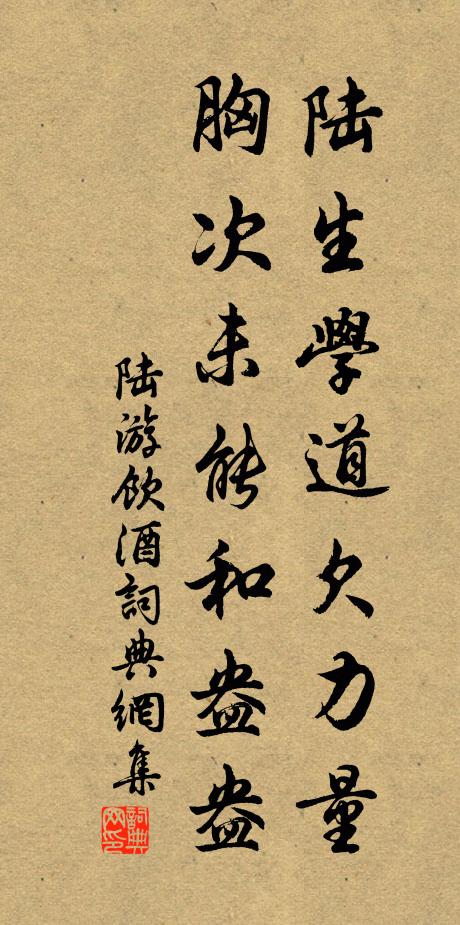 陆生學道欠力量
胸次未能和盎盎
陆游飲酒詞典網集
詞典网印